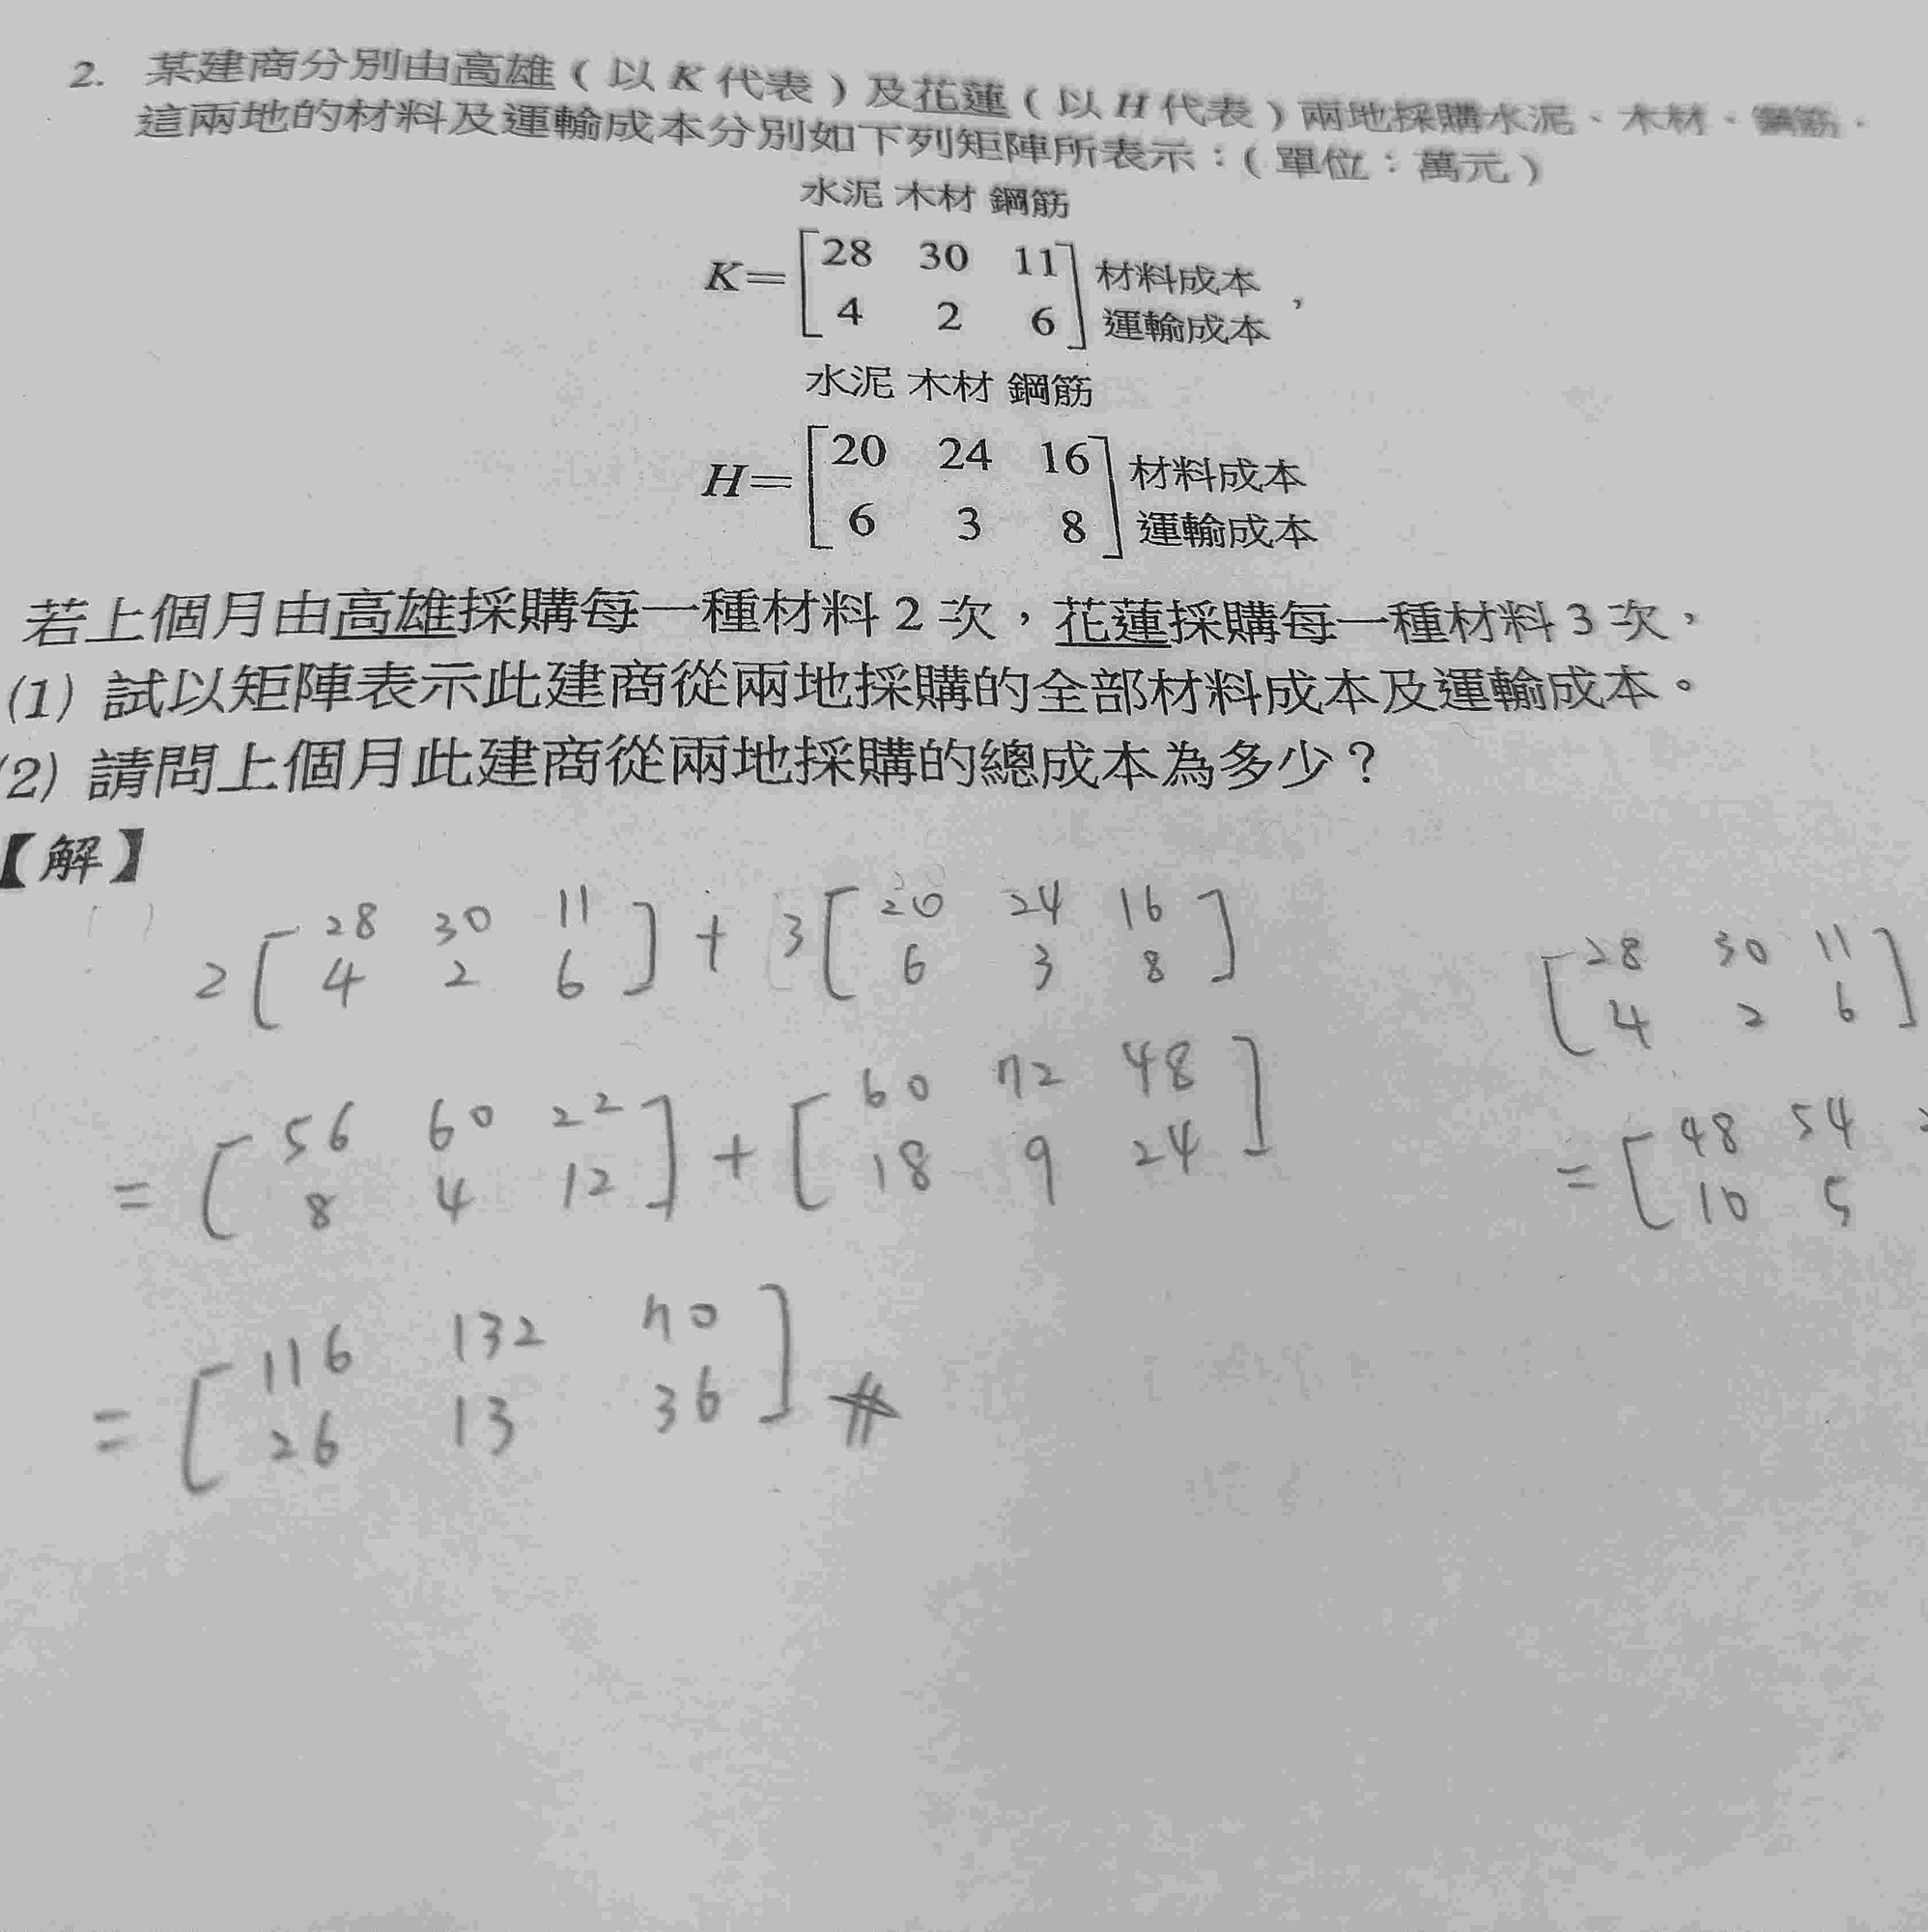 2. 某建商分別由高雄(以K代表)及花蓮(以H代表)兩地採購水泥、木材、鋼筋,
這兩地的材料及運輸成本分別如下列矩陣所表示:(單位:萬元)
水泥 木材 鋼筋
K= [28 30 11] 材料成本
[4 2 6] 運輸成本,
水泥 木材 鋼筋
H= [20 24 16] 材料成本
[6 3 8] 運輸成本
若上個月由高雄採購每一種材料2次,花蓮採購每一種材料3次,
(1) 試以矩陣表示此建商從兩地採購的全部材料成本及運輸成本。
(2) 請問上個月此建商從兩地採購的總成本為多少?
【解】
2 [28 30 11] + 3 [20 24 16]
[4 2 6] [6 3 8]
[28 30 11]
[4 2 6]
= [56 60 22] + [60 72 48]
[8 4 12] [18 9 24]
= [48 54
[10 5
= [116 132 70]
[26 13 36] #